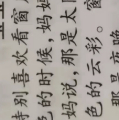 特别喜欢看窗
色的时候，妈妈
妈说，那是太
色的云彩。窗
那是夜晚